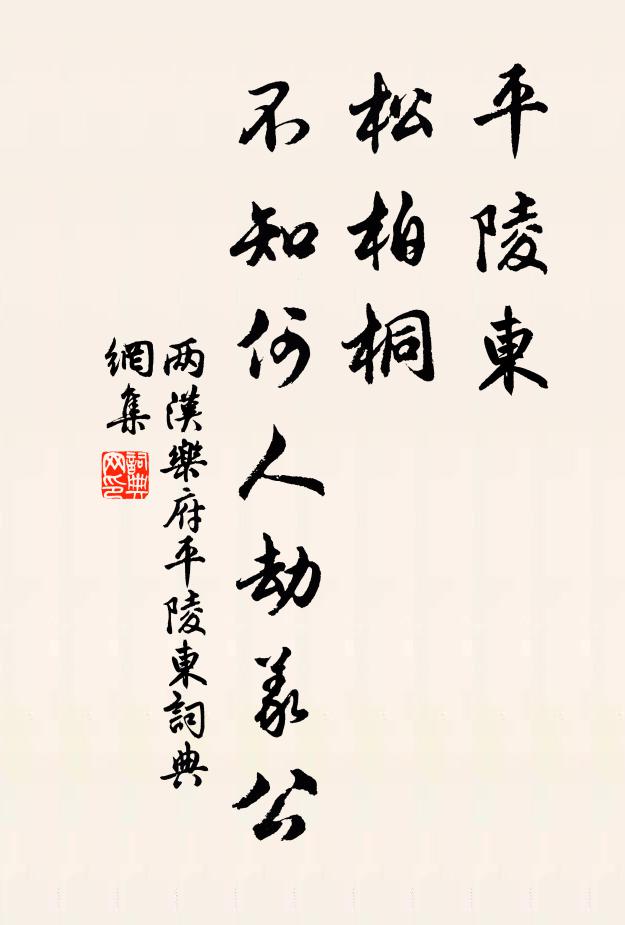 平陵東
松柏桐
不知何人劫義公
两漢樂府平陵東詞典
網集
詞典
网印